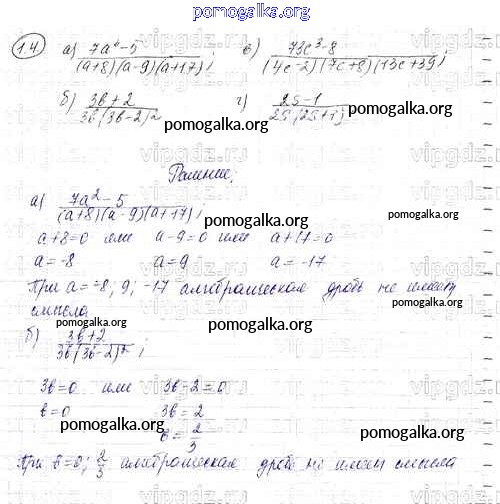 pomogalka.org
1.4 а) (7a² - 5)/((a+8)(a-9)(a+17)); в) (73c³ - 8)/((4c-2)(7c+8)(13c+39));
б) (3b+2)/(3b(3b-2)²) г) (2S-1)/(2S(2S+1))
pomogalka.org
pomogalka.org
Решение:
а) (7a² - 5)/((a+8)(a-9)(a+17));
pomogalka.org
a+8=0 или a-9=0 или a+17=0
a=-8 a=9 a=-17
При a=-8; 9; -17 алгебраическая дробь не имеет
смысла
pomogalka.org
б) (3b+2)/(3b(3b-2)²);
3b=0 или 3b-2=0
b=0 3b=2
pomogalka.org
pomogalka.org
b=2/3
При b=0; 2/3 алгебраическая дробь не имеет смысла
pomogalka.org